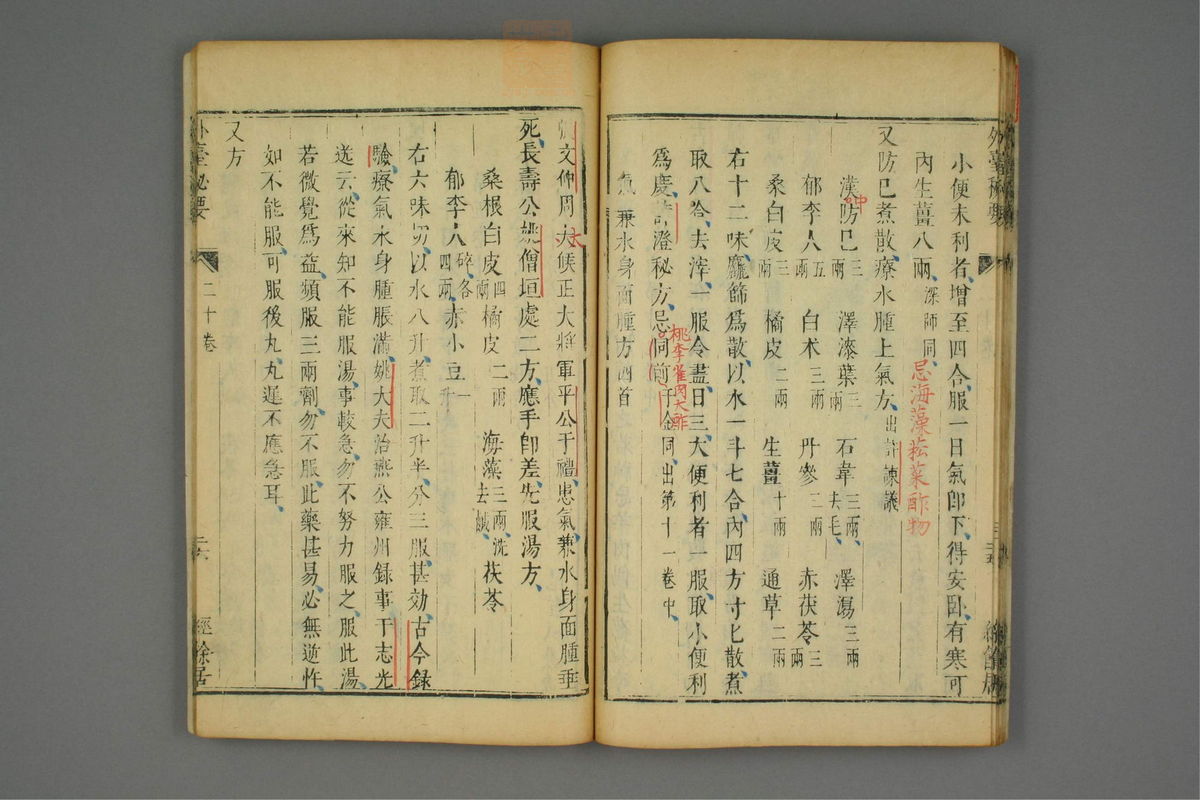 小便未利者增至四合服一日氣即下得安臥有寒可
內生薑八兩深師同忌海藻菘菜酢物
又防已煮散療水腫上氣方出許諫議
漢防已三兩 澤漆葉三兩 石韋三兩去毛 澤瀉三兩
郁李人五兩 白朮三兩 丹參三兩 赤茯苓三兩
桑白皮三兩 橘皮二兩 生薑十兩 通草二兩
右十二味麤篩爲散以水一斗七合內四方寸匕散煮
取八合去滓一服令盡日三大便利者一服取小便利
爲慶許澄秘方忌同前千金同出第十一卷中
桃李雀肉大酢
氣兼水身面腫方四首
張文仲周大候正大將軍平公于禮患氣兼水身面腫垂
死長壽公姚僧垣處二方應手即差先服湯方
桑根白皮四兩 橘皮二兩 海藻三兩洗去鹹 茯苓
郁李人碎各四兩 赤小豆一升
右六味切以水八升煮取二升半分三服甚効古今録
驗療氣水身腫脹滿姚大夫治燕公雍州録事于志光
遙云從來知不能服湯事較急勿不努力服之服此湯
若微覺爲益頻服三兩劑勿不服此藥甚易必無逆忤
如不能服可服後丸丸遲不應急耳
又方
外臺秘要
二十卷
二六
經餘居